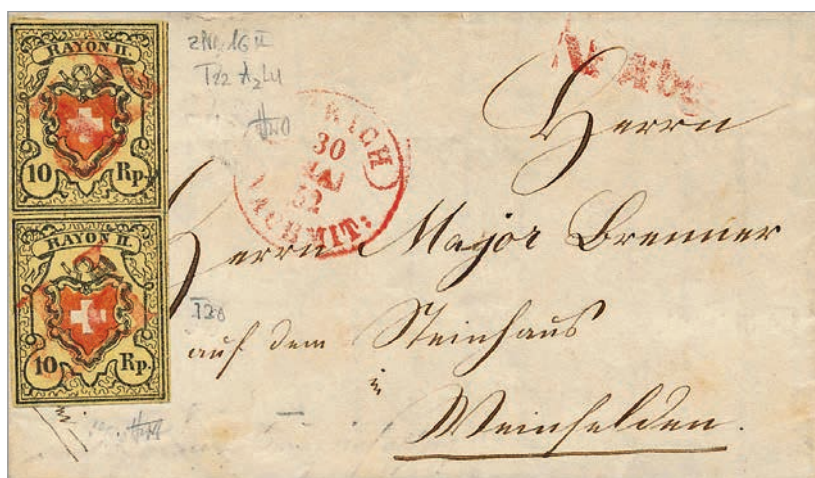 RAYON II.
10 Rp.
RAYON II.
10 Rp.
zNr. 16 II
T22 A2 LU
ZÜRICH
30
MAI
52
NACHMIT:
Herrn
Herrn Major Brenner
T20
auf dem Steinhaus
in
Weinfelden.